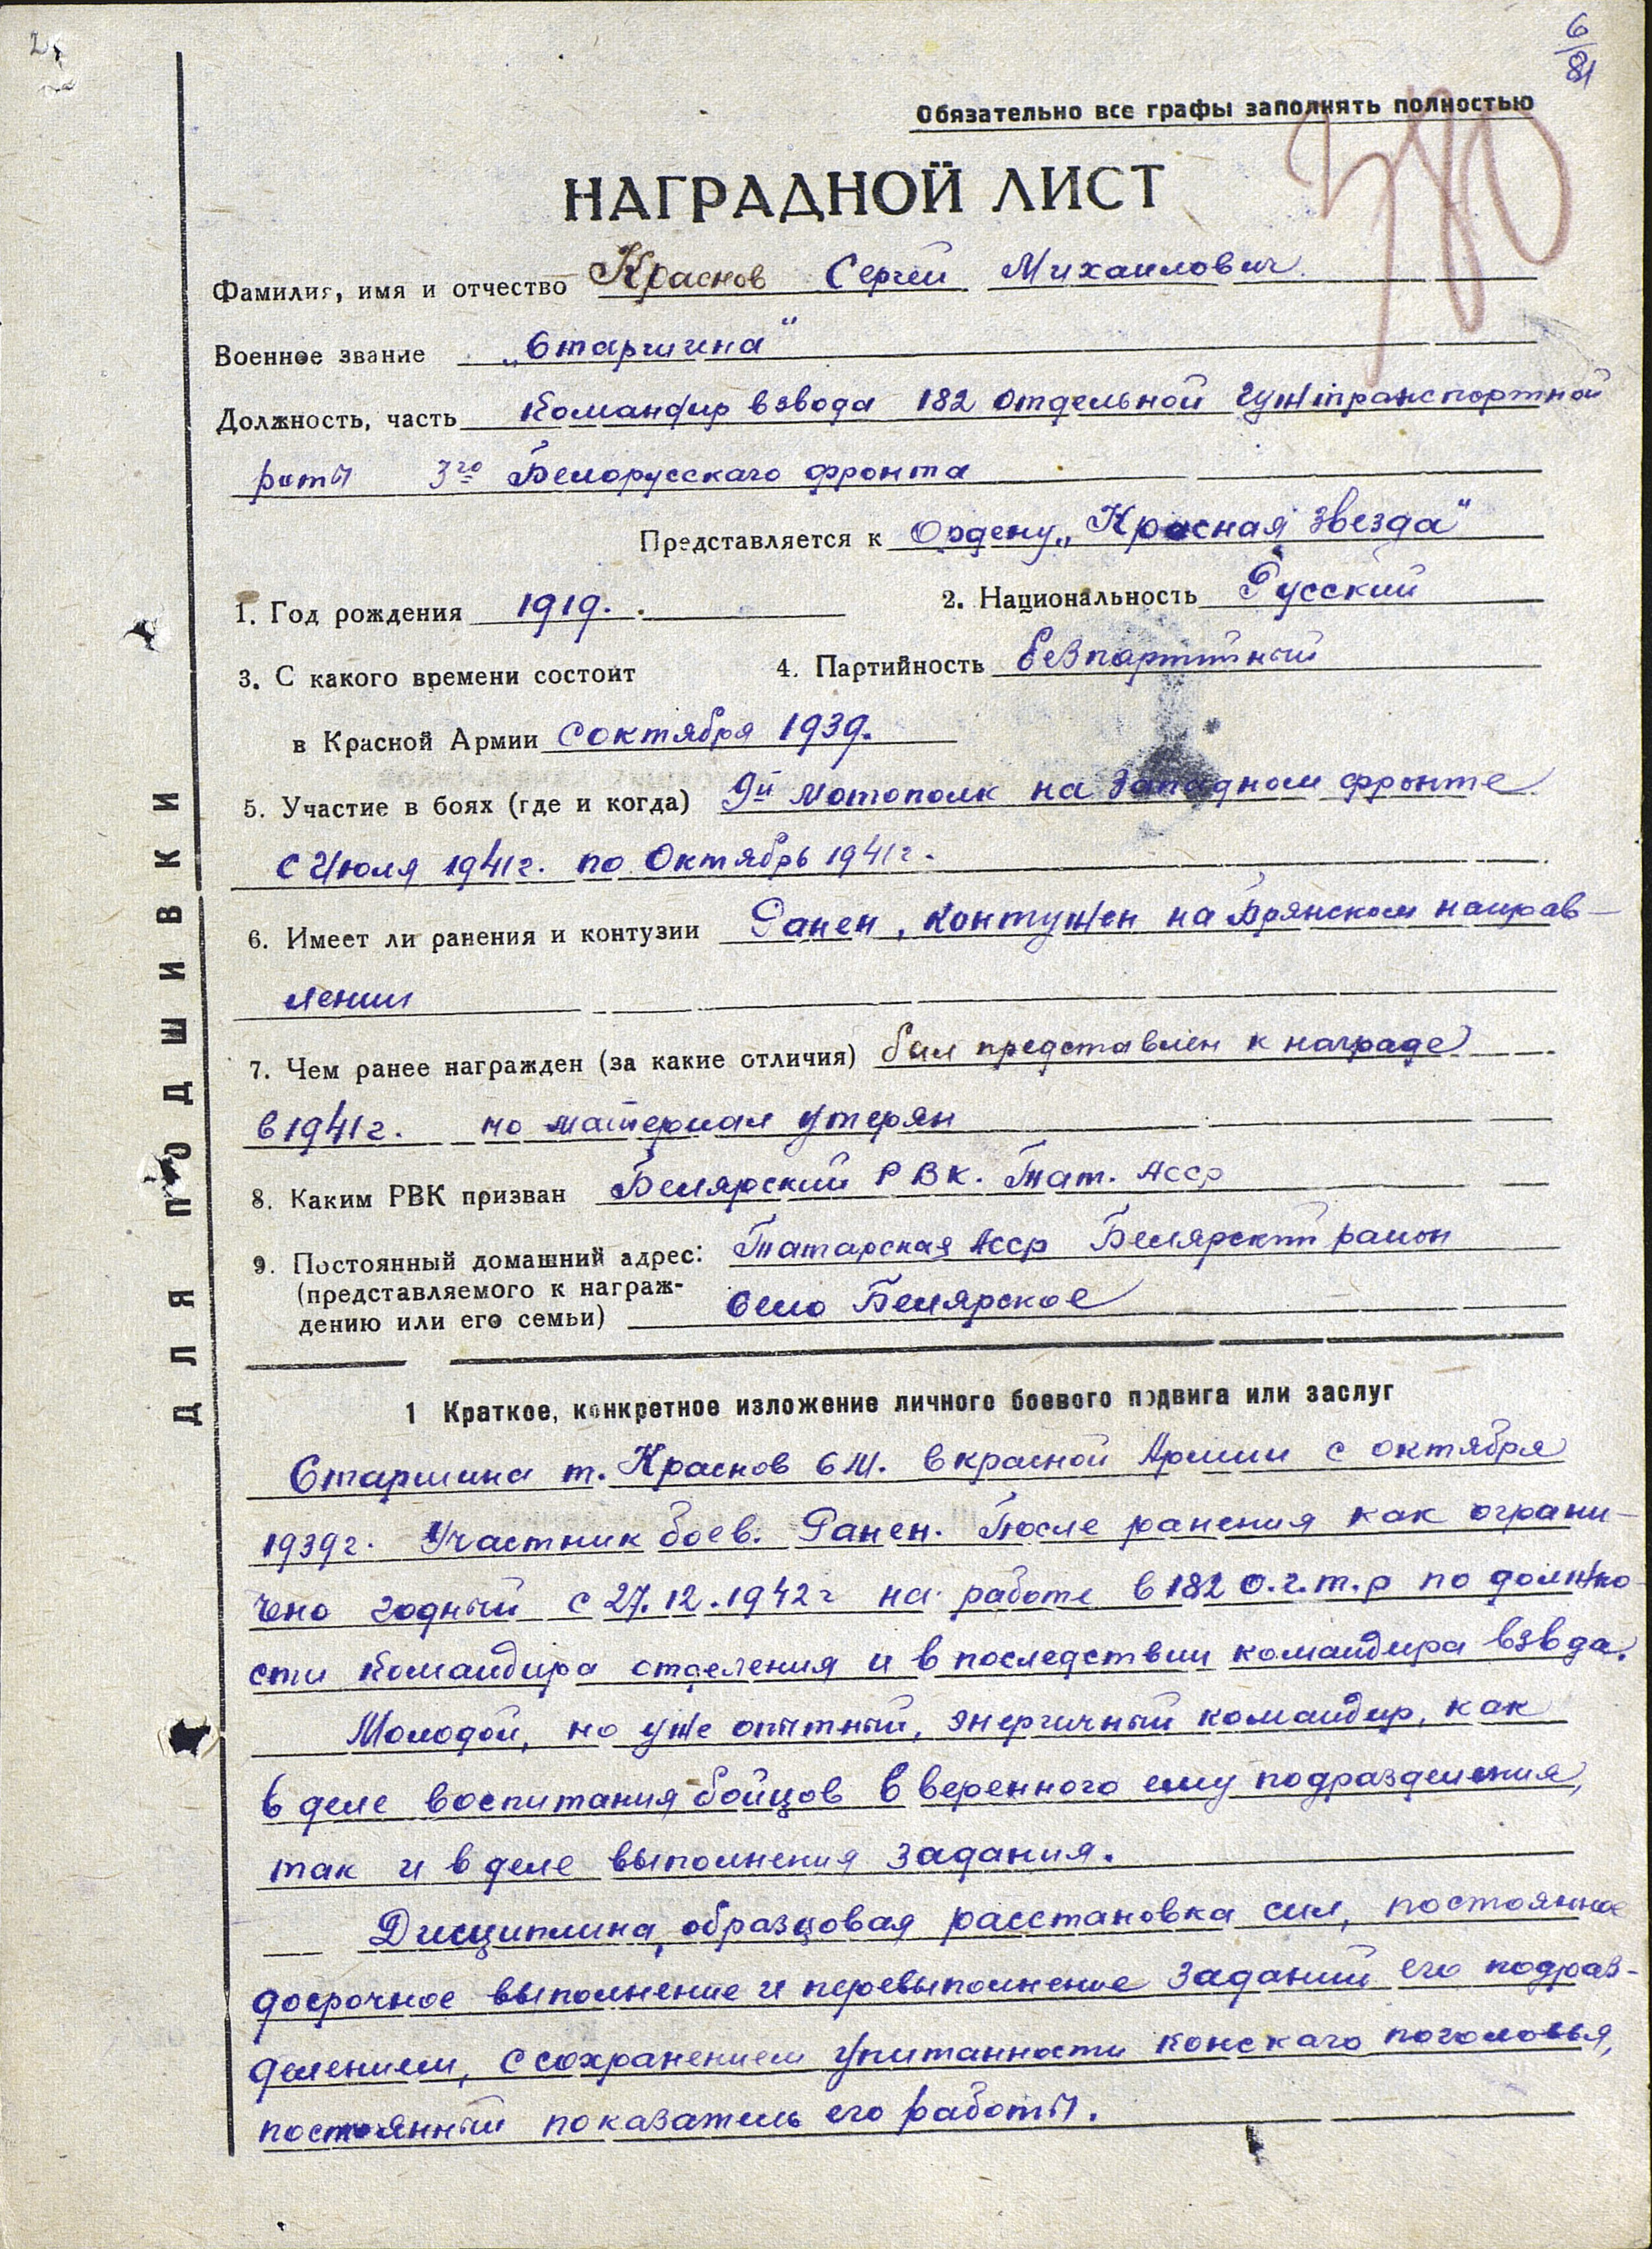 6
81
Обязательно все графы заполнять полностью
380
НАГРАДНОЙ ЛИСТ
Фамилия, имя и отчество Краснов Сергей Михаилович.
Военное звание „Старшина“
Должность, часть Командир взвода 182 отдельной гужтранспортной
роты 3го Белорусскаго фронта
Представляется к Ордену „Красная звезда“
1. Год рождения 1919.
2. Национальность Русский
3. С какого времени состоит
4. Партийность безпартийный
в Красной Армии с октября 1939.
5. Участие в боях (где и когда) 9й мотополк на Западном фронте
с Июля 1941г. по Октябрь 1941г.
6. Имеет ли ранения и контузии Ранен, контужен на Брянском направ-
лении
7. Чем ранее награжден (за какие отличия) был представлен к награде
в 1941г. но материал утерян
8. Каким РВК призван Белярский РВК. Тат. АССР
9. Постоянный домашний адрес: Татарская АССР Белярский район
(представляемого к награж-
дению или его семьи) село Белярское
ДЛЯ ПОДШИВКИ
1 Краткое, конкретное изложение личного боевого подвига или заслуг
Старшина т. Краснов С М. в красной Армии с октября
1939г. Участник боев. Ранен. После ранения как ограни-
чено годный с 27.12.1942г на работе в 182 о.г.т.р по должно-
сти командира отделения и в последствии командира взвода.
Молодой, но уже опытный, энергичный командир, как
в деле воспитания бойцов вверенного ему подразделения,
так и в деле выполнения задания.
Дисциплина, образцовая расстановка сил, постоянное
досрочное выполнение и перевыполнение заданий его подраз-
делением, с сохранением упитанности конскаго поголовья,
постоянный показатель его работы.